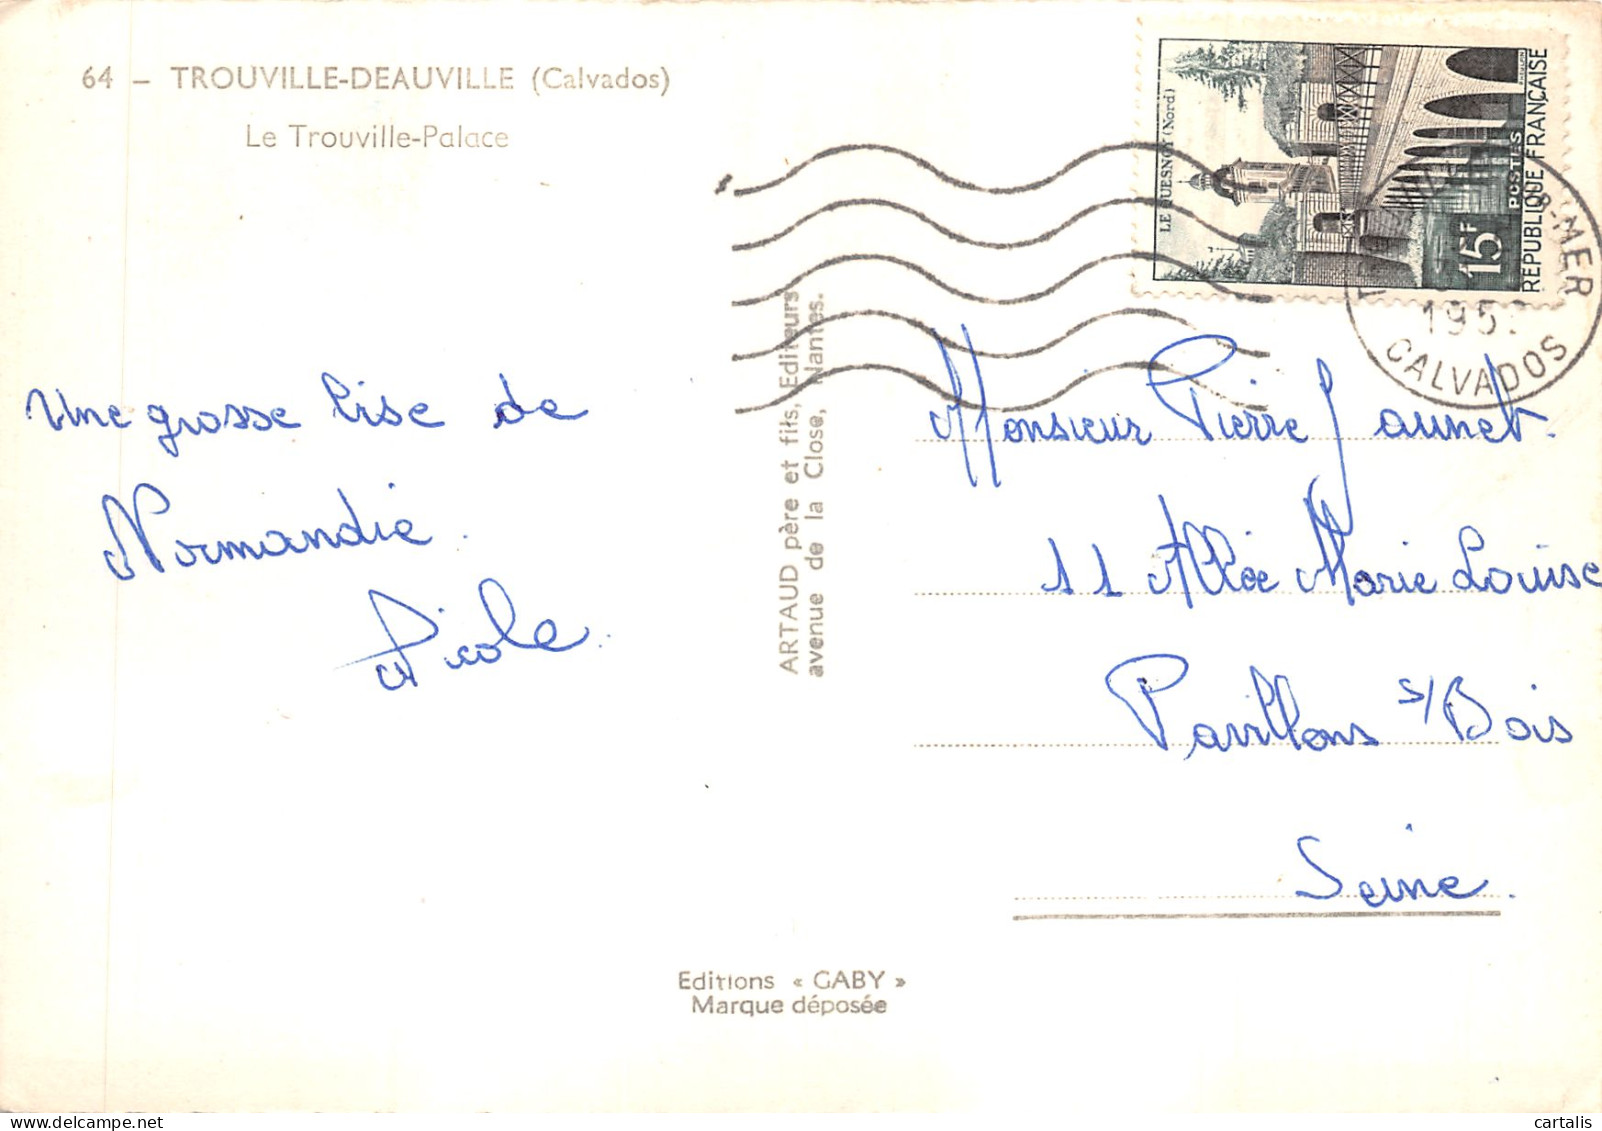 64 – TROUVILLE-DEAUVILLE (Calvados)
Le Trouville-Palace
Une grosse bise de
Normandie.
Nicole.
ARTAUD père et fils, Editeurs
avenue de la Close, Nantes.
LE QUESNOY (Nord)
15F
POSTES
RÉPUBLIQUE FRANÇAISE
-MER
195
CALVADOS
Monsieur Pierre Jaunet.
11 Allée Marie Louise
Pavillons s/Bois
Seine.
Editions « GABY »
Marque déposée
cartalis
delcampe.net